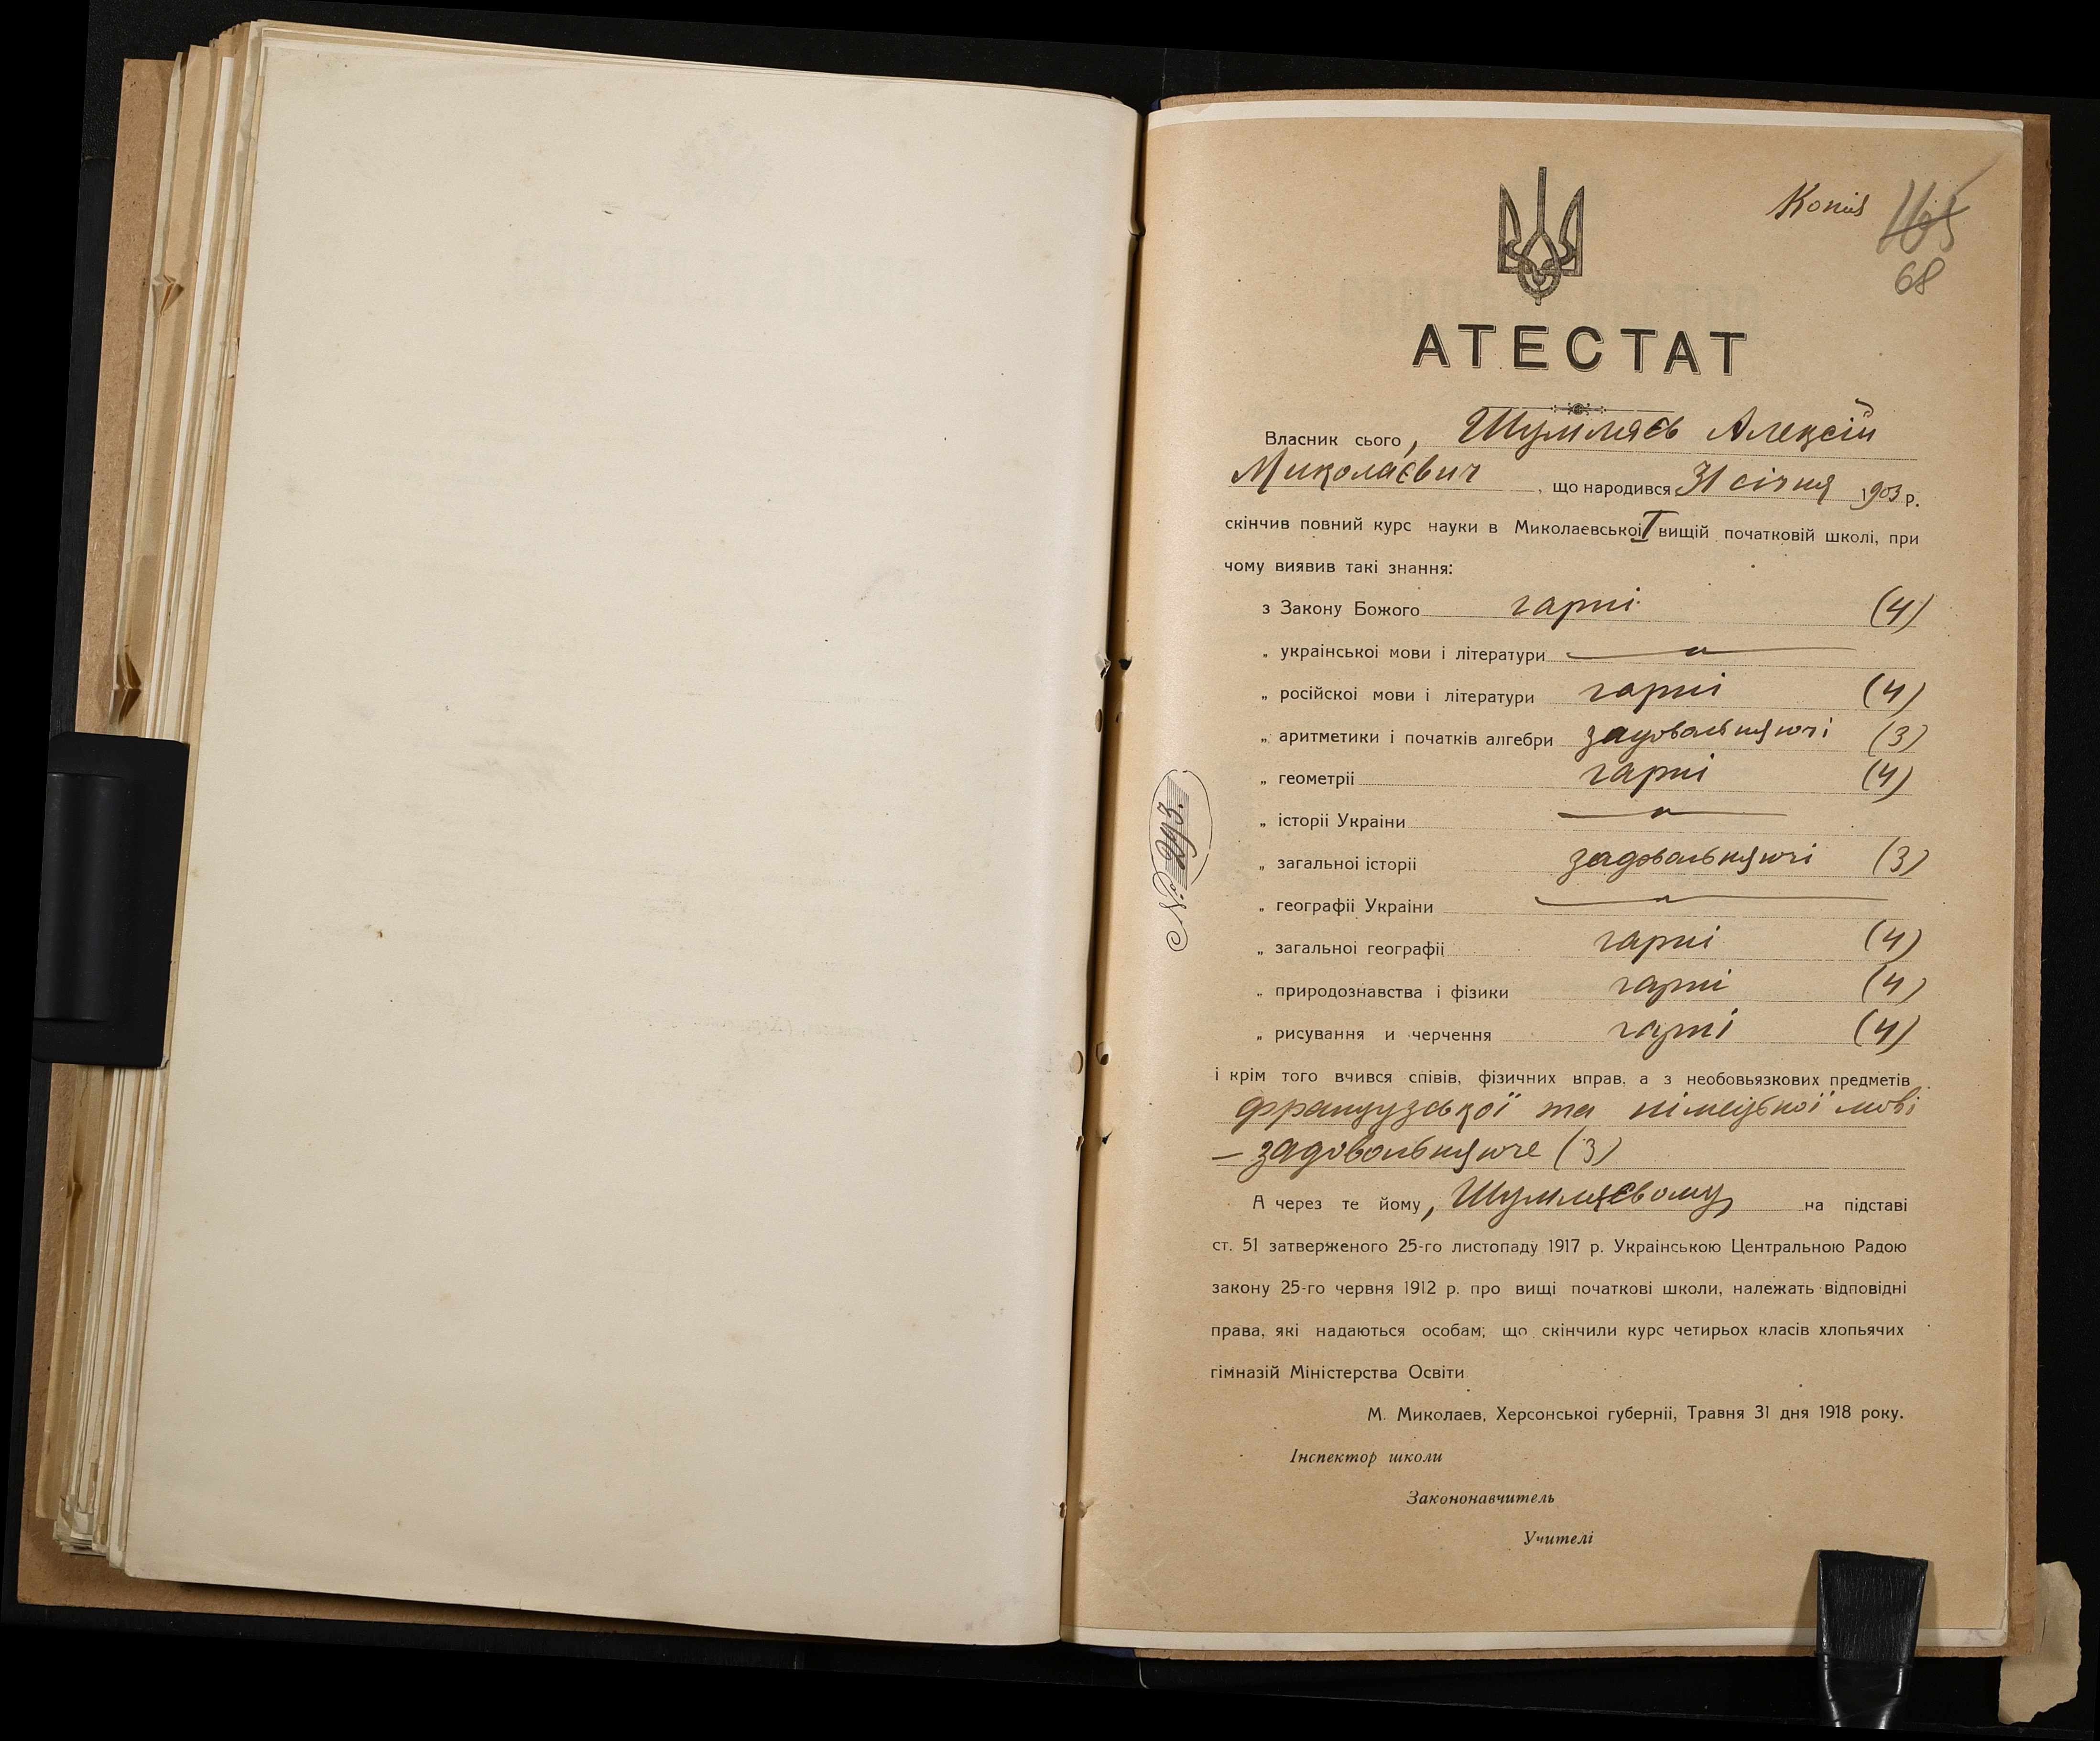 Копія 165
68
АТЕСТАТ
Власник сього, Шумляєв Алексій
Миколаєвич, що народився 31 січня 1903 р.
скінчив повний курс науки в Миколаевськоі I вищій початковій школі, при
чому виявив такі знання:
з Закону Божого гарні (4)
„ украінськоі мови і літератури — „ —
„ російскоі мови і літератури гарні (4)
„ аритметики і початків алгебри задовольняючі (3)
„ геометріі гарні (4)
„ історіі Украіни — „ —
„ загальноі історіі задовольняючі (3)
„ географіі Украіни — „ —
„ загальноі географіі гарні (4)
„ природознавства і фізики гарні (4)
„ рисування и черчення гарні (4)
і крім того вчився співів, фізичних вправ, а з необовьязкових предметів
французської та німецької мові
— задовольняюче (3)
А через те йому, Шумляєвому, на підставі
ст. 51 затверженого 25-го листопаду 1917 р. Украінською Центральною Радою
закону 25-го червня 1912 р. про вищі початкові школи, належать відповідні
права, які надаються особам, що скінчили курс четирьох класів хлопьячих
гімназій Міністерства Освіти
М. Миколаев, Херсонськоі губерніі, Травня 31 дня 1918 року.
Інспектор школи
Закононавчитель
Учителі
№ 293.